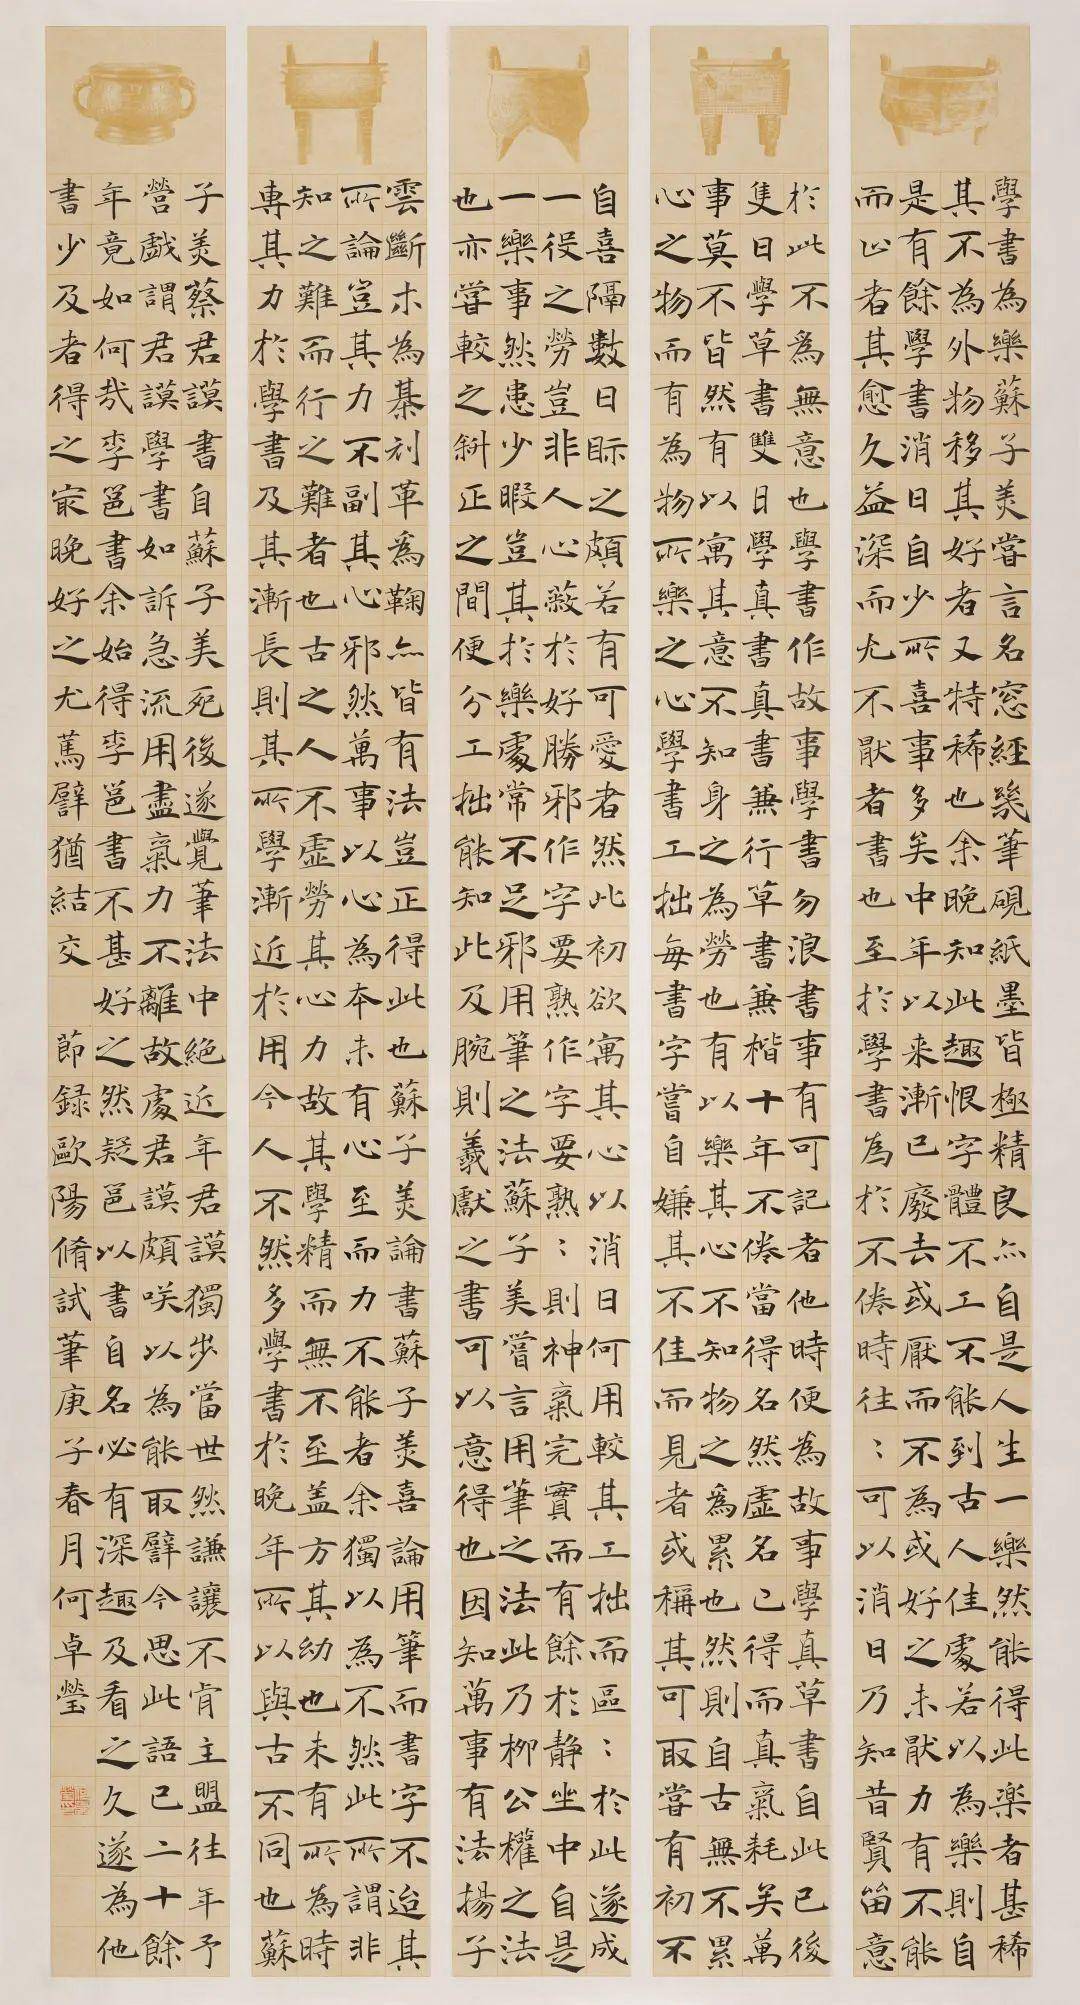 學書為樂蘇子美嘗言名窓經幾筆硯紙墨皆極精良亦自是人生一樂然能得此楽者甚稀
其不為外物移其好者又特稀也余晚知此趣恨字體不工不能到古人佳處若以為樂則自
是有餘學書消日自少所喜事多矣中年以来漸已廢去或厭而不為或好之未厭力有不能
而止者其愈久益深而尤不厭者書也至於學書為於不倦時往〻可以消日乃知昔賢留意
於此不為無意也學書作故事學書勿浪書事有可記者他時便為故事學真草書自此已後
隻日學草書雙日學真書真書兼行草書兼楷十年不倦當得名然虛名已得而真氣耗矣萬
事莫不皆然有以寓其意不知身之為勞也有以樂其心不知物之為累也然則自古無不累
心之物而有為物所樂之心學書工拙每書字嘗自嫌其不佳而見者或稱其可取嘗有初不
自喜隔數日眎之頗若有可愛者然此初欲寓其心以消日何用較其工拙而區〻於此遂成
一役之勞豈非人心蔽於好勝邪作字要熟作字要熟〻則神氣完實而有餘於静坐中自是
一樂事然患少暇豈其於樂處常不足邪用筆之法蘇子美嘗言用筆之法此乃柳公權之法
也亦嘗較之斜正之間便分工拙能知此及腕則羲獻之書可以意得也因知萬事有法揚子
雲斷木為棊刓革為鞠亦皆有法豈正得此也蘇子美論書蘇子美喜論用筆而書字不迨其
所論豈其力不副其心邪然萬事以心為本未有心至而力不能者余獨以為不然此所謂非
知之難而行之難者也古之人不虛勞其心力故其學精而無不至盖方其幼也未有所為時
專其力於學書及其漸長則其所學漸近於用今人不然多學書於晚年所以與古不同也蘇
子美蔡君謨書自蘇子美死後遂覺筆法中絕近年君謨獨步當世然謙讓不肯主盟往年予
營戲謂君謨學書如訴急流用盡氣力不離故處君謨頗咲以為能取譬今思此語已二十餘
年竟如何哉李邕書余始得李邕書不甚好之然疑邕以書自名必有深趣及看之久遂為他
書少及者得之最晚好之尤篤譬猶結交 節録歐陽脩試筆庚子春月何卓瑩